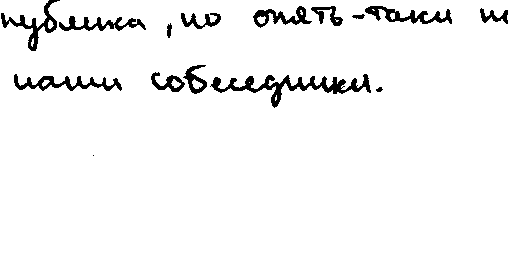 публика, но опять-таки не
наши собеседники.